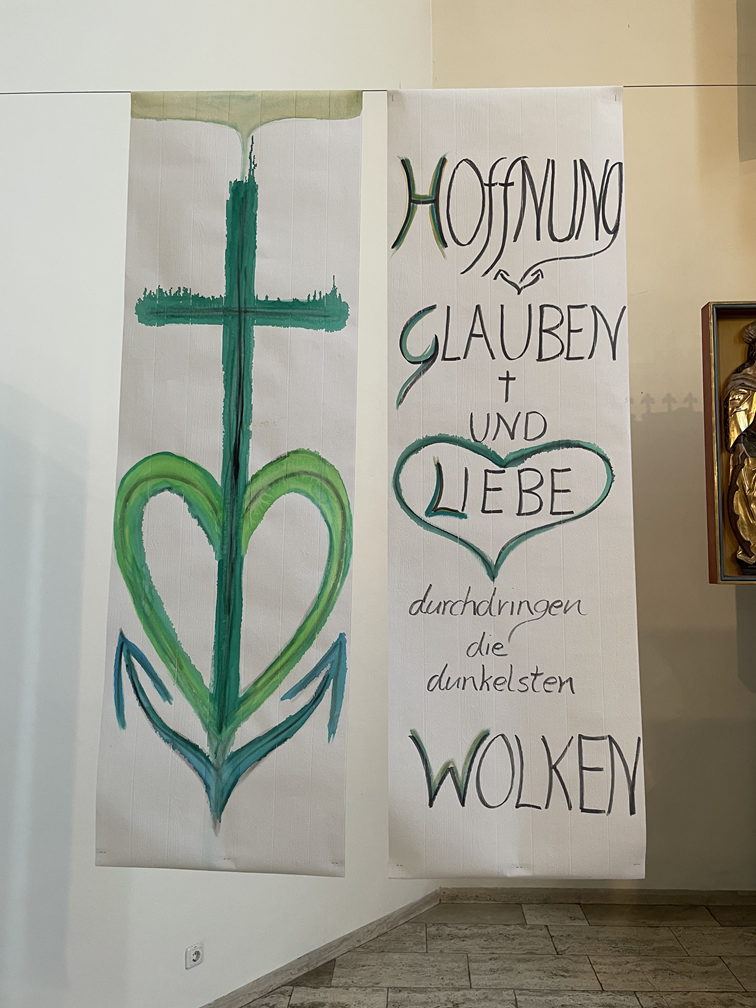 HOffNUNG
GLAUBEN
†
UND
LIEBE
durchdringen
die
dunkelsten
WOLKEN